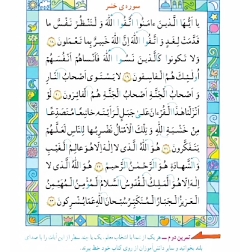 سوره‌ی حشر
یا اَیُّهَا الَّذینَ ءامَنُوا اتَّقُوا اللّٰهَ وَ لْتَنظُرْ نَفْسٌ ما
قَدَّمَتْ لِغَدٍ وَ اتَّقُوا اللّٰهَ اِنَّ اللّٰهَ خَبیرٌ بِما تَعْمَلونَ
وَلا تَکونوا کَالَّذینَ نَسُوا اللّٰهَ فَاَنساهُمْ اَنفُسَهُمْ
اُولٰئِکَ هُمُ الْفاسِقونَ لا یَسْتَوی اَصْحابُ النّارِ
وَ اَصْحابُ الْجَنَّةِ اَصْحابُ الْجَنَّةِ هُمُ الْفائِزونَ
لَوْ اَنزَلْنا هٰذَا الْقُرْءانَ عَلیٰ جَبَلٍ لَرَاَیْتَهُ خاشِعًا مُتَصَدِّعًا
مِنْ خَشْیَةِ اللّٰهِ وَ تِلْکَ الْاَمْثالُ نَضْرِبُها لِلنّاسِ لَعَلَّهُمْ
یَتَفَکَّرونَ هُوَ اللّٰهُ الَّذی لا اِلٰهَ اِلّا هُوَ عالِمُ الْغَیْبِ
وَ الشَّهادَةِ هُوَ الرَّحْمٰنُ الرَّحیمُ هُوَ اللّٰهُ الَّذی لا
اِلٰهَ اِلّا هُوَ الْمَلِکُ الْقُدّوسُ السَّلامُ الْمُؤْمِنُ الْمُهَیْمِنُ
الْعَزیزُ الْجَبّارُ الْمُتَکَبِّرُ سُبْحانَ اللّٰهِ عَمّا یُشْرِکونَ
تمرین دوم